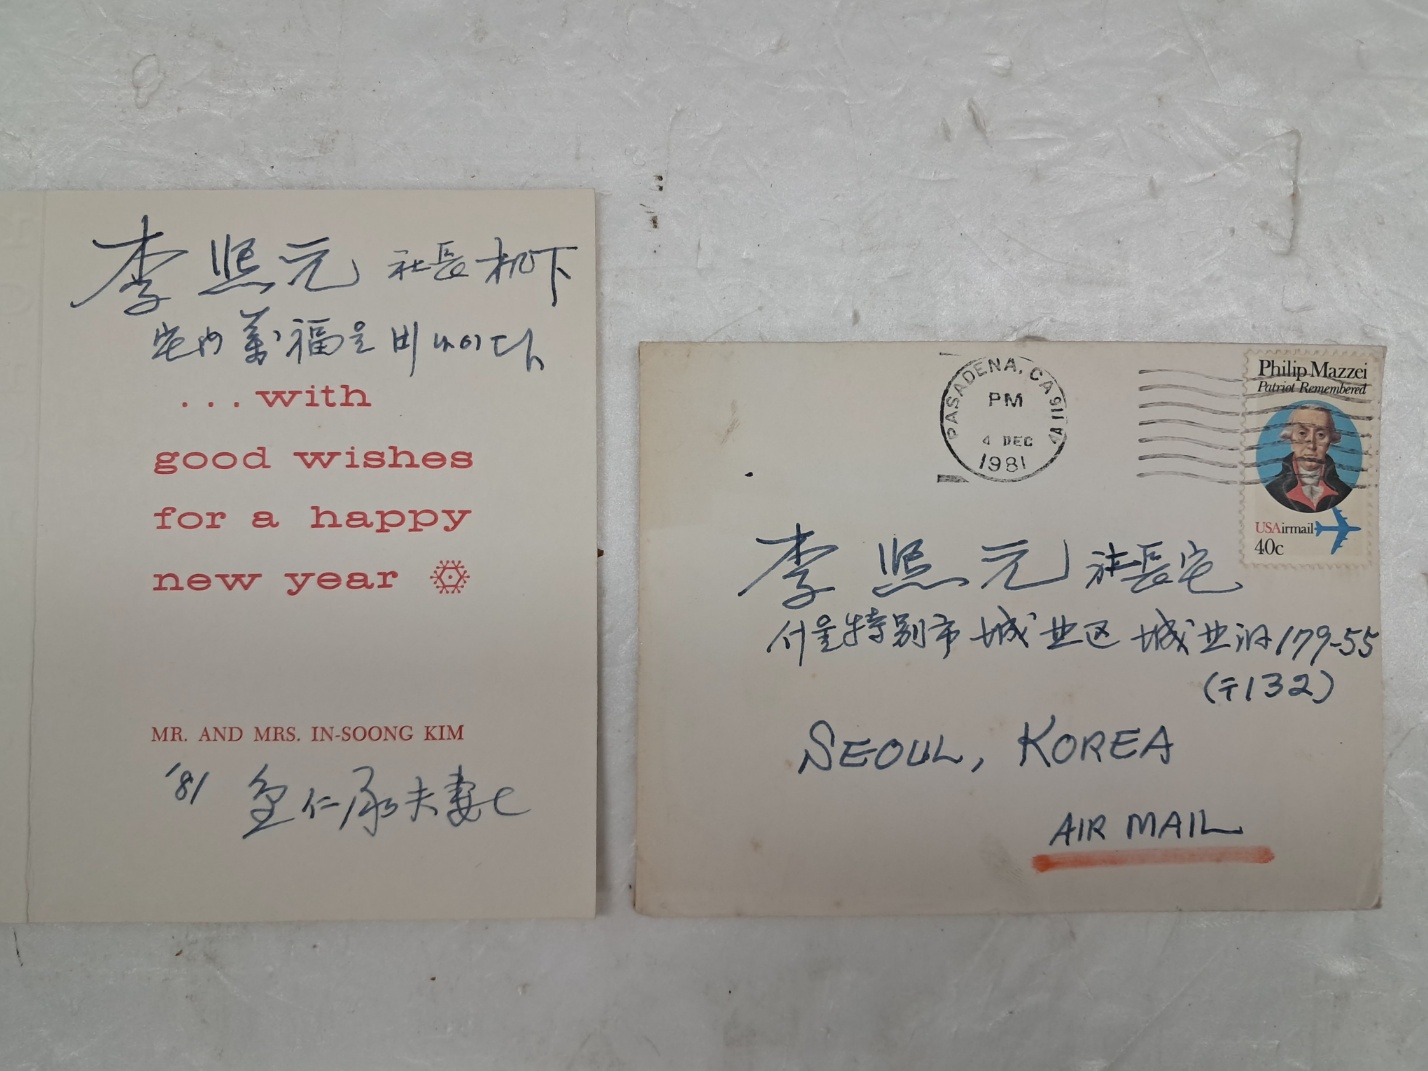 李熙元 社長 机下
宅內 萬福을 비나이다
...with
good wishes
for a happy
new year
MR. AND MRS. IN-SOONG KIM
'81 金仁承夫妻
PASADENA, CA 911
PM
4 DEC
1981
Philip Mazzei
Patriot Remembered
USAirmail
40c
李熙元 社長宅
서울特別市 城북区 城북洞 179-55
(〒132)
SEOUL, KOREA
AIR MAIL